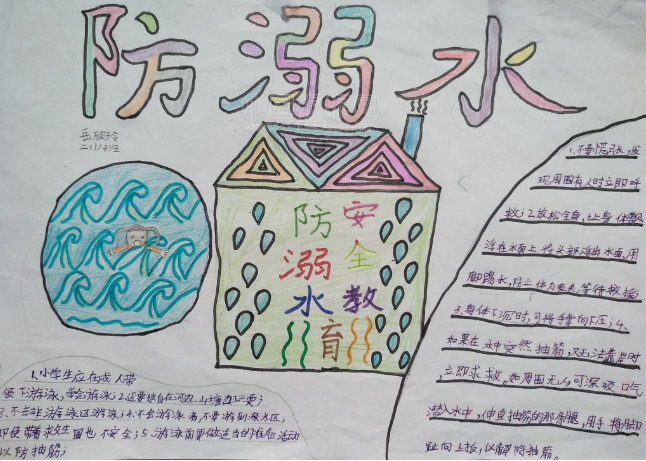 防溺水
岳欣玲
二(1)班
防溺水
安全教育
1.小学生应在成人带
领下游泳,学会游泳;2.
3.不去非游泳区游泳;4.不会游泳者,不要游到深水区,
即使带着救生圈也不安全;5.游泳前要做适当的准备活动
以防抽筋;
1.不要慌张,发
现周围有人时立即呼
救;2.放松全身,让身体飘
浮在水面上,将头部浮出水面,用
脚踢水,防止体力丧失,等待救援
3.身体下沉时,可将手掌向下压;4.
如果在水中突然抽筋,又无法靠岸时
立即求救,如周围无人,可深吸口气
潜入水中,伸直抽筋的那条腿,用手将脚
趾向上扳,以解除抽筋。